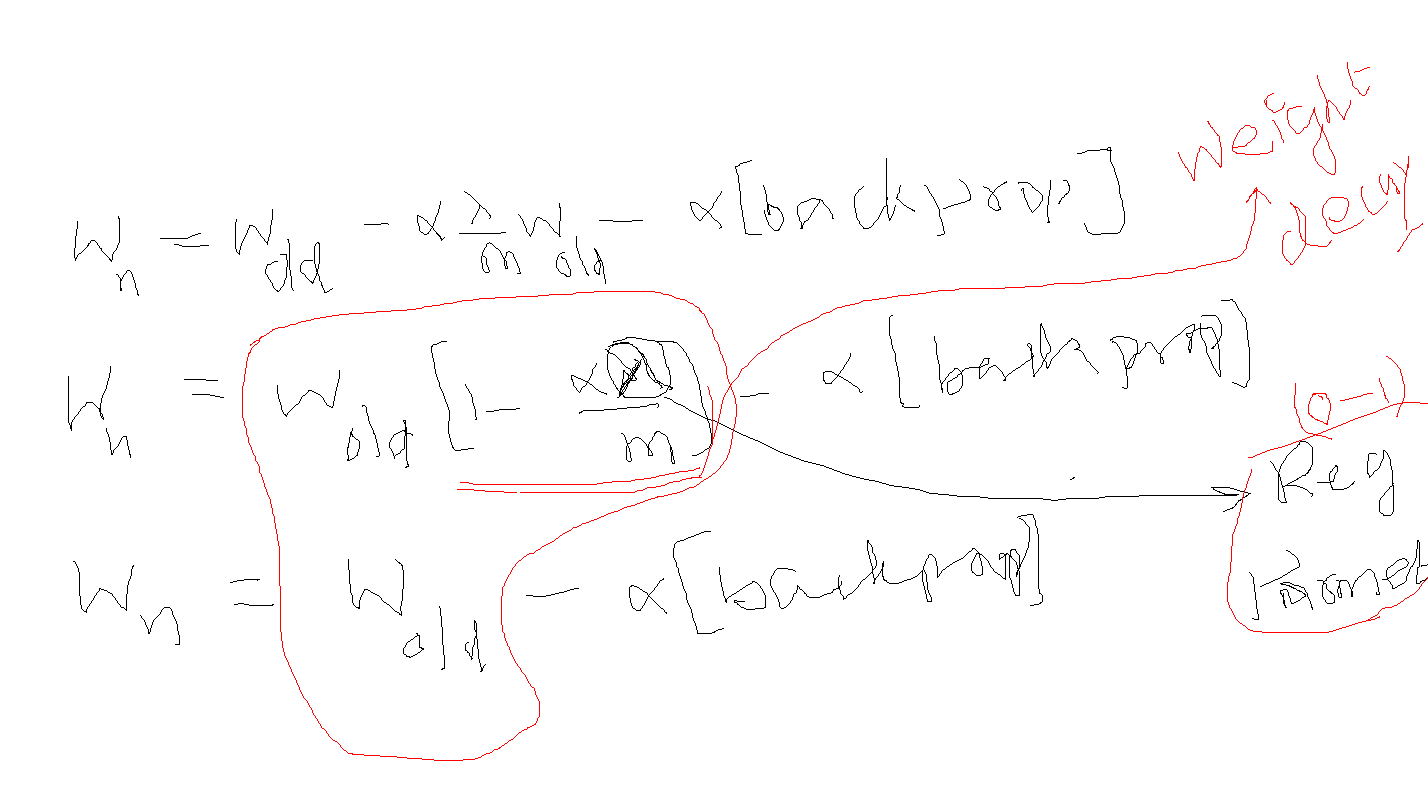 Wn = Wold - α λ/m Wold - α [backprop]
weight
decay
Wn = Wold [1 - αλ/m] - α [backprop]
(0-1)
Reg
Wn = Wold - α [backprop]